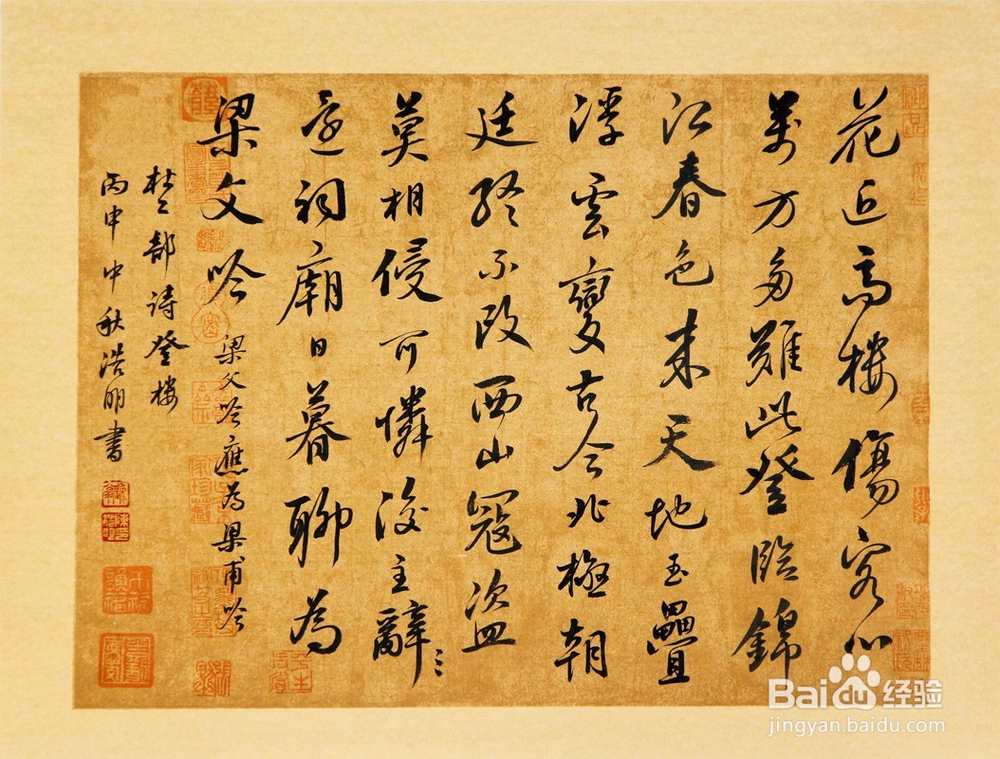 花近高樓傷客心
萬方多難此登臨錦
江春色来天地玉壘
浮雲變古今北極朝
廷終不改西山寇盗
莫相侵可憐後主辭
還祠廟日暮聊為
梁文吟
梁父吟應為梁甫吟
杜工部詩登樓
丙申中秋浩明書
Baidu经验
jingyan.baidu.com